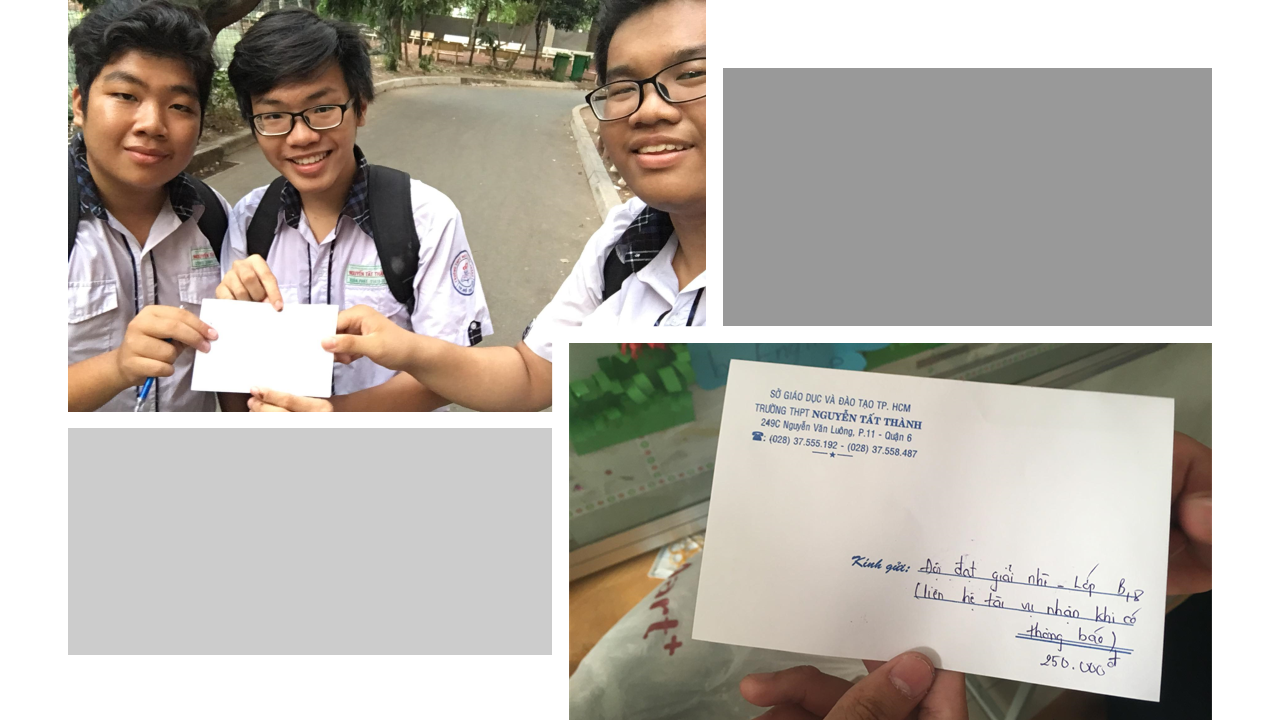 NGUYỄN TẤT THÀNH
SỞ GIÁO DỤC VÀ ĐÀO TẠO TP. HCM
TRƯỜNG THPT NGUYỄN TẤT THÀNH
249C Nguyễn Văn Luông, P.11 - Quận 6
☎: (028) 37.555.192 - (028) 37.558.487
Kính gửi: Đội đạt giải nhì - Lớp B18
(liên hệ tài vụ nhận khi có
thông báo)
250.000đ
art+